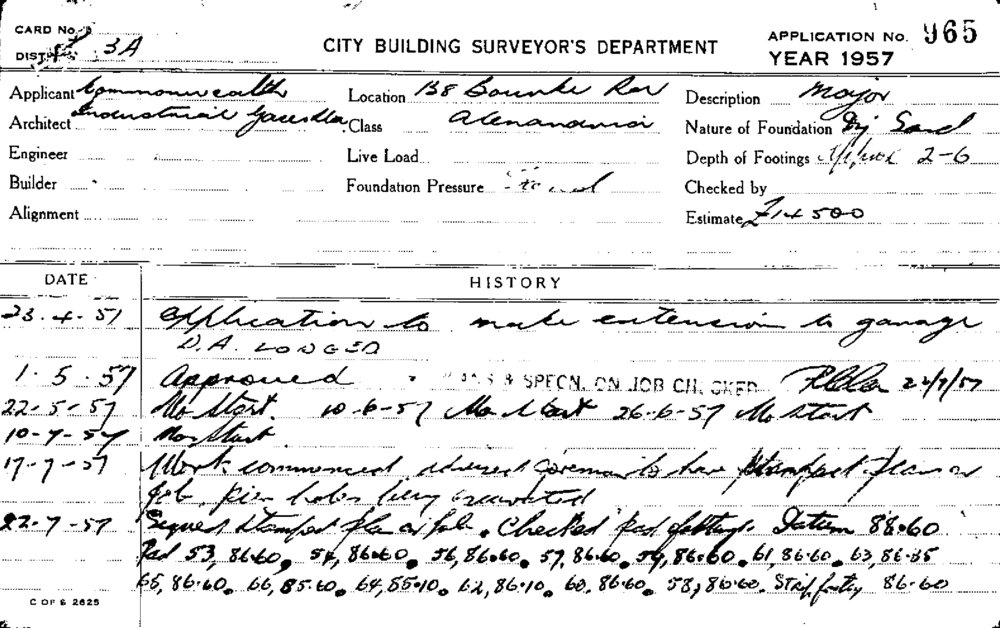 CARD No.
DIST. 3A
CITY BUILDING SURVEYOR'S DEPARTMENT
APPLICATION No. 965
YEAR 1957
Applicant Commonwealth
Industrial Gases Ltd.
Location 138 Bourke Rd
Alexandria
Description Major
Architect
Class
Nature of Foundation Dry Sand
Engineer
Live Load
Depth of Footings 2-6
Builder
Foundation Pressure
Checked by
Alignment
Estimate £14500
DATE
HISTORY
23.4.57 Application to make extension to garage
D.A. LODGED
1.5.57 Approved PLANS & SPECN. ON JOB CHECKED 22/7/57
22-5-57 No Start. 10-6-57 No Start 26-6-57 No Start
10-7-57 No Start
17-7-57 Work commenced advised foreman to have stamped plan on
job, pier holes being excavated
22-7-57 Signed stamped plan on job. Checked pad footings. Datum 88.60
Pad 53, 86.60. 54, 86.60. 56, 86.60. 57, 86.60. 59, 86.60. 61, 86.60. 63, 86.35
65, 86.60. 66, 85.60. 64, 85.10. 62, 86.10. 60, 86.60. 58, 86.60. Strip footing 86.60
C OF S 2625